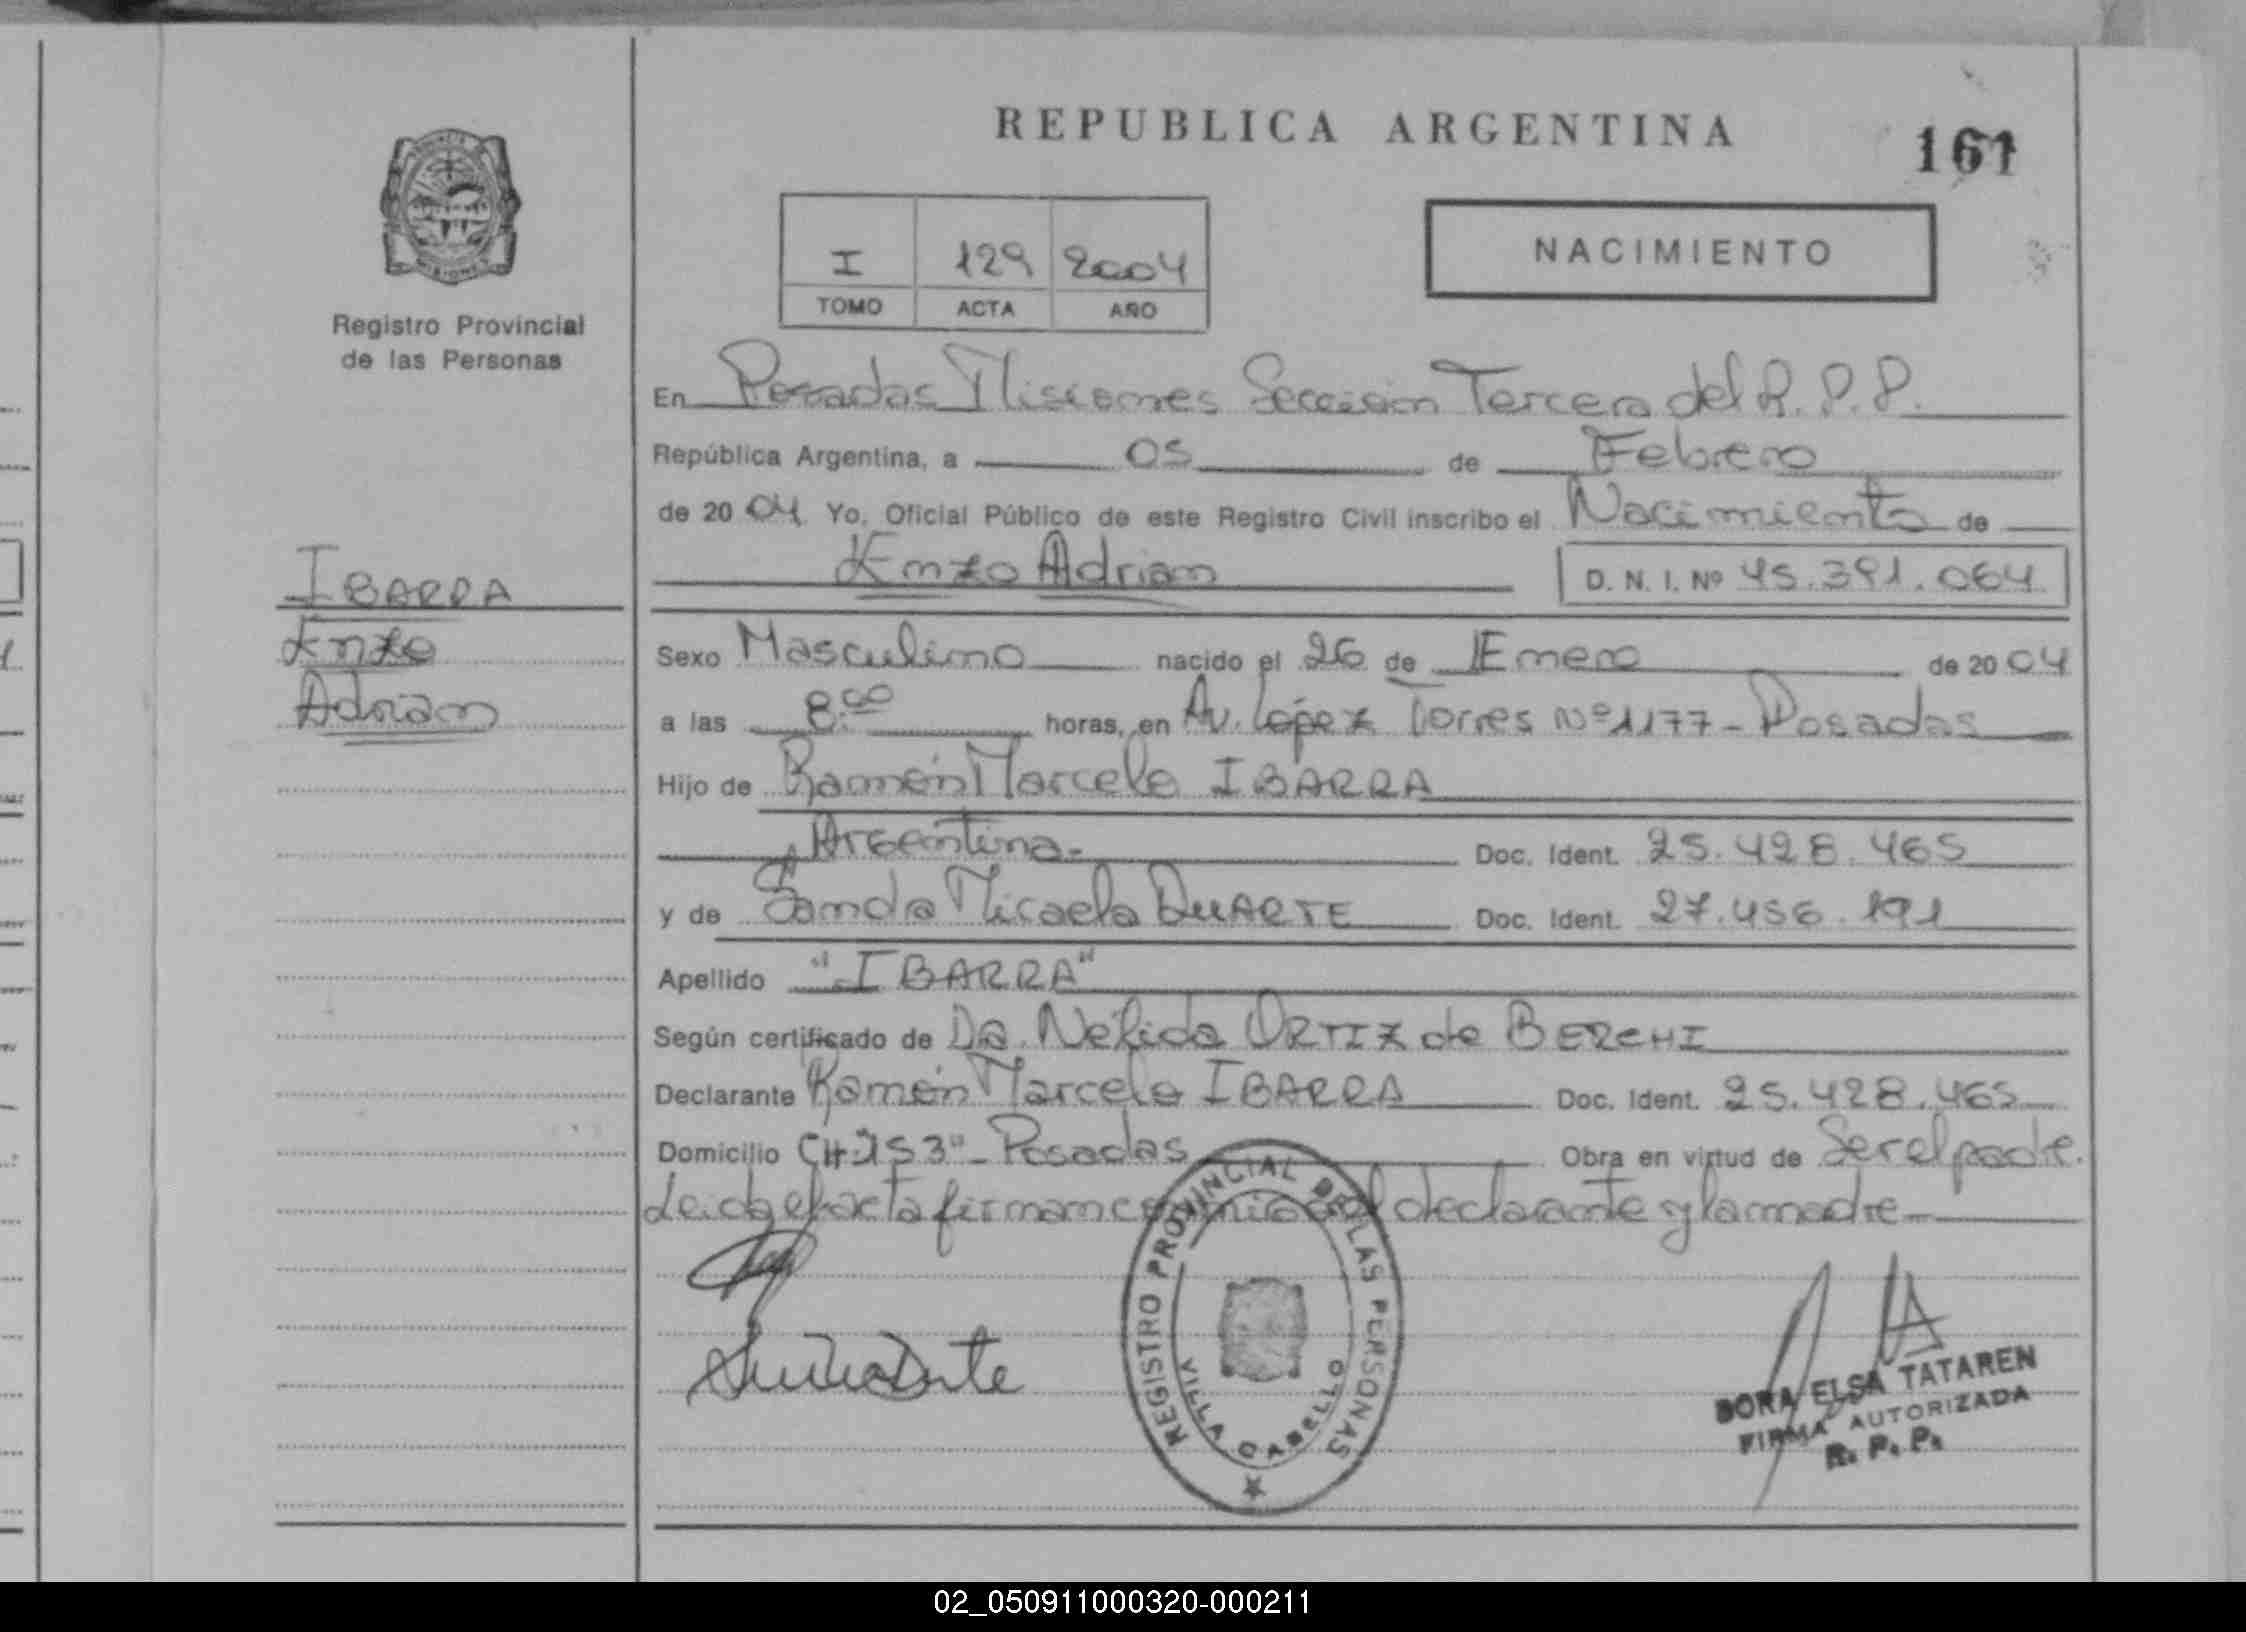 REPUBLICA ARGENTINA
161
I 129 2004
TOMO ACTA AÑO
NACIMIENTO
MISIONES
Registro Provincial
de las Personas
IBARRA
Enzo
Adrian
En Posadas Misiones Sección Tercera del R.P.P.
República Argentina, a 05 de Febrero
de 2004 Yo, Oficial Público de este Registro Civil inscribo el Nacimiento de
Enzo Adrian D. N. I. Nº 45.391.064
Sexo Masculino nacido el 26 de Enero de 2004
a las 8:00 horas, en Av. López Torres Nº 1177 - Posadas
Hijo de Ramón Marcelo IBARRA
Argentina- Doc. Ident. 25.428.465
y de Sandra Micaela DUARTE Doc. Ident. 27.456.191
Apellido "IBARRA"
Según certificado de Da. Nélida ORTIZ de BERCHI
Declarante Ramón Marcelo IBARRA Doc. Ident. 25.428.465
Domicilio CH:"153"- Posadas Obra en virtud de Ser el padre.
Leida el acta firman conmigo el declarante y la madre
REGISTRO PROVINCIAL DE LAS PERSONAS
VILLA CABELLO
DORA ELSA TATAREN
FIRMA AUTORIZADA
R. P. P.
02_050911000320-000211